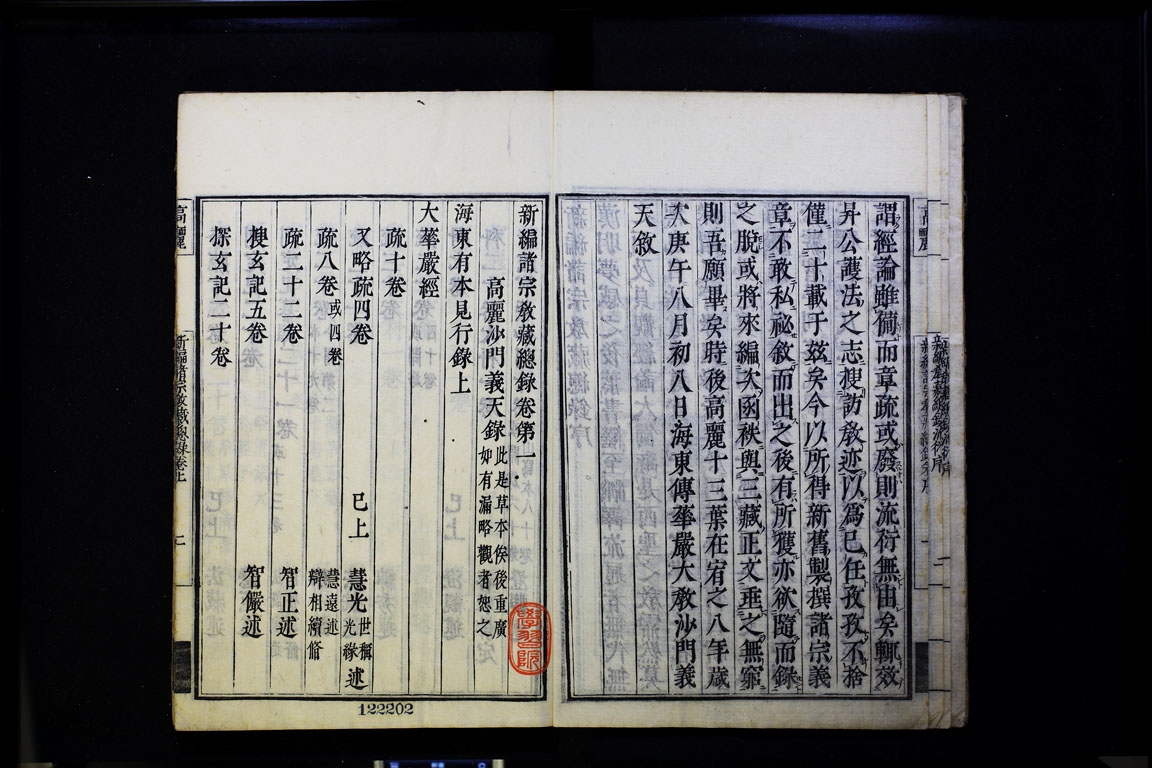 謂經論雖備而章疏或廢則流衍無由矣輒效
昇公護法之志搜訪教迹以爲己任孜孜不捨
僅二十載于玆矣今以所得新舊製撰諸宗義
章不敢私祕敘而出之後有所獲亦欲隨而錄
之脫或將來編次函秩與三藏正文垂之無窮
則吾願畢矣時後高麗十三葉在宥之八年歲
次庚午八月初八日海東傳華嚴大教沙門義
天敘
新編諸宗教藏總錄卷第一
高麗沙門義天錄 此是草本俟後重廣 如有漏略觀者恕之
海東有本見行錄上
大華嚴經
疏十卷
又略疏四卷 已上 慧光 世稱 光緣 述
疏八卷 或四卷 慧遠述 辯相續脩
疏二十二卷 智正述
搜玄記五卷 智儼述
探玄記二十卷
新編諸宗教藏總錄卷上
122202